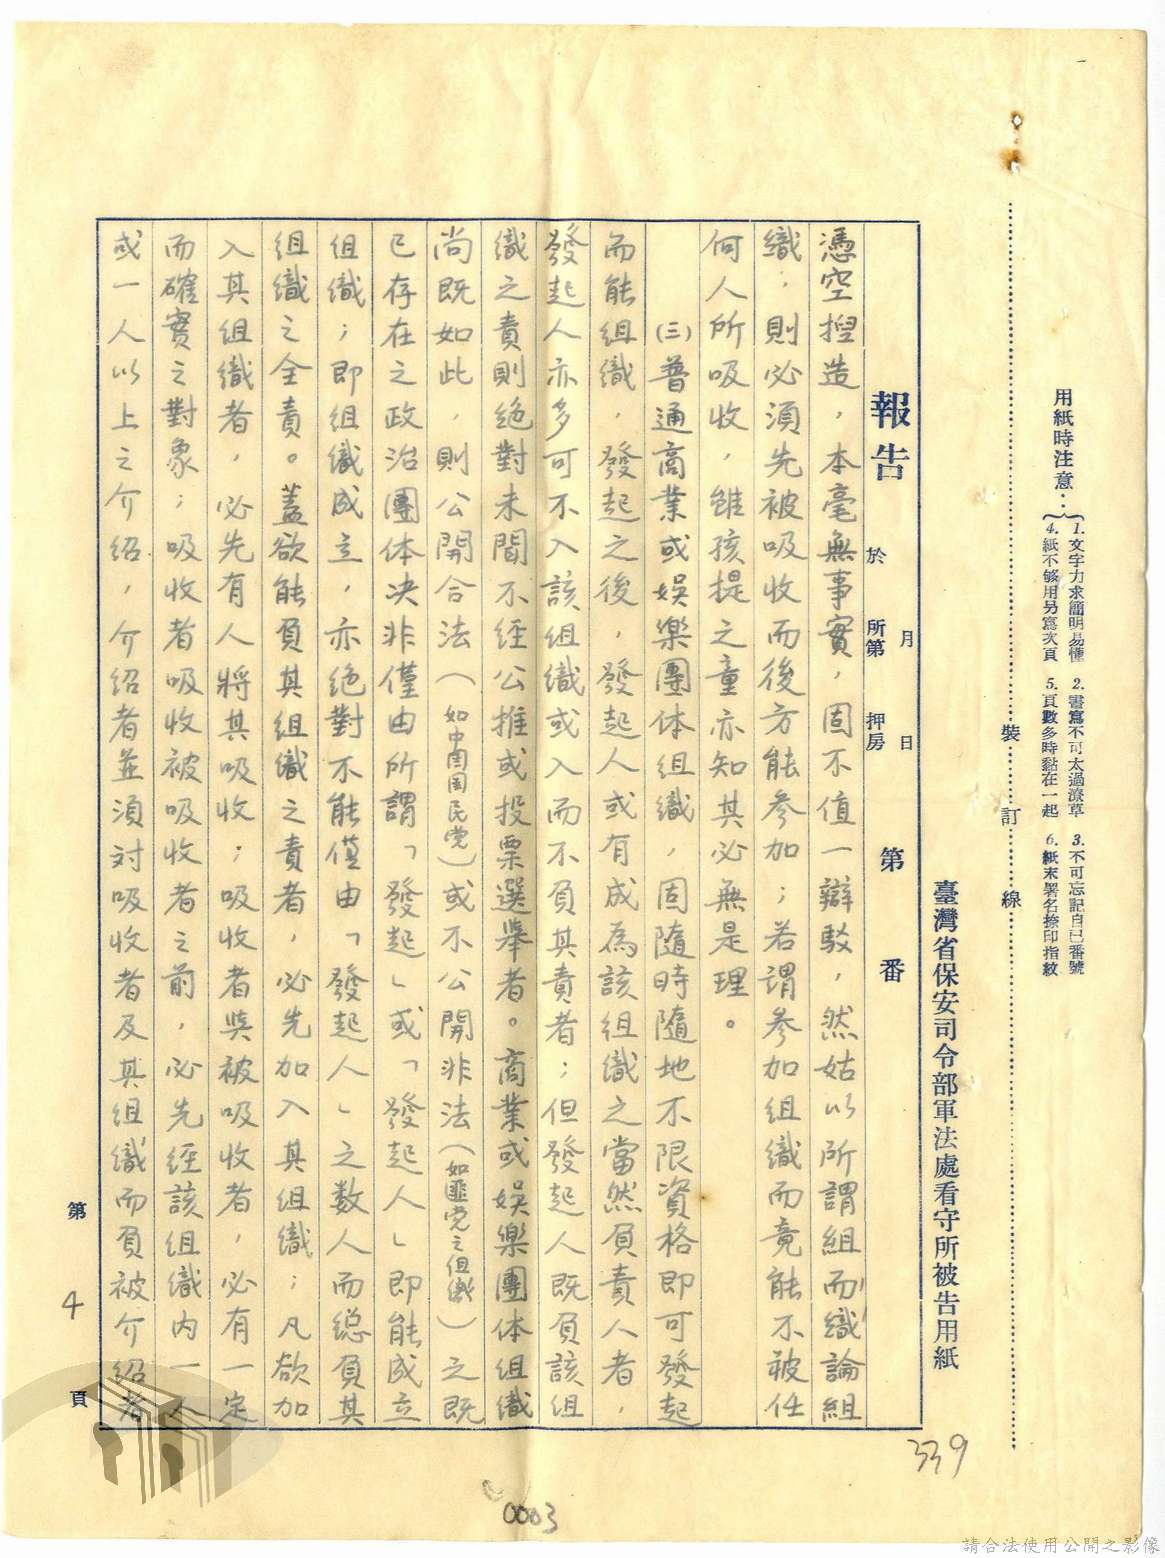 用紙時注意：
1.文字力求簡明易懂 2.書寫不可太過潦草 3.不可忘記自已番號
4.紙不够用另寫次頁 5.頁數多時黏在一起 6.紙末署名捺印指紋
裝 訂 線
臺灣省保安司令部軍法處看守所被告用紙
報告
月 日
於 所第 押房
第 番
憑空揑造，本毫無事實，固不值一辯駁，然姑以所謂組而織論組
織，則必須先被吸收而後方能參加；若謂參加組織而竟能不被任
何人所吸收，雖孩提之童亦知其必無是理。
(三)普通商業或娛樂團体組織，固隨時隨地不限資格即可發起
而能組織，發起之後，發起人或有成為該組織之當然負責人者，
發起人亦多可不入該組織或入而不負其責者；但發起人既負該組
織之責則絕對未聞不經公推或投票選舉者。商業或娛樂團体組織
尚既如此，則公開合法（如中国国民党）或不公開非法（如匪党之組織）之既
已存在之政治團体决非僅由所謂「發起」或「發起人」即能成立
組織；即組織成立，亦絕對不能僅由「發起人」之数人而総負其
組織之全責。蓋欲能負其組織之責者，必先加入其組織；凡欲加
入其組織者，必先有人將其吸收；吸收者與被吸收者，必有一定
而確實之對象；吸收者吸收被吸收者之前，必先經該組織內一人
或一人以上之介紹，介紹者並須对吸收者及其組織而負被介紹者
第 4 頁
339
0003
請合法使用公開之影像